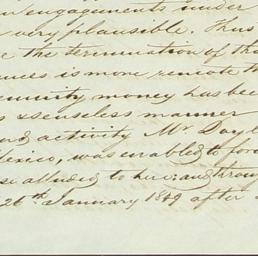 engagements under
very plausible. Thus
the termination of th
nces is more remote th
money has bee
s & senseless manner
and activity Mr Doyl
Mexico, was enabled to for
se alluded to here: and throug
26th January 1849 after